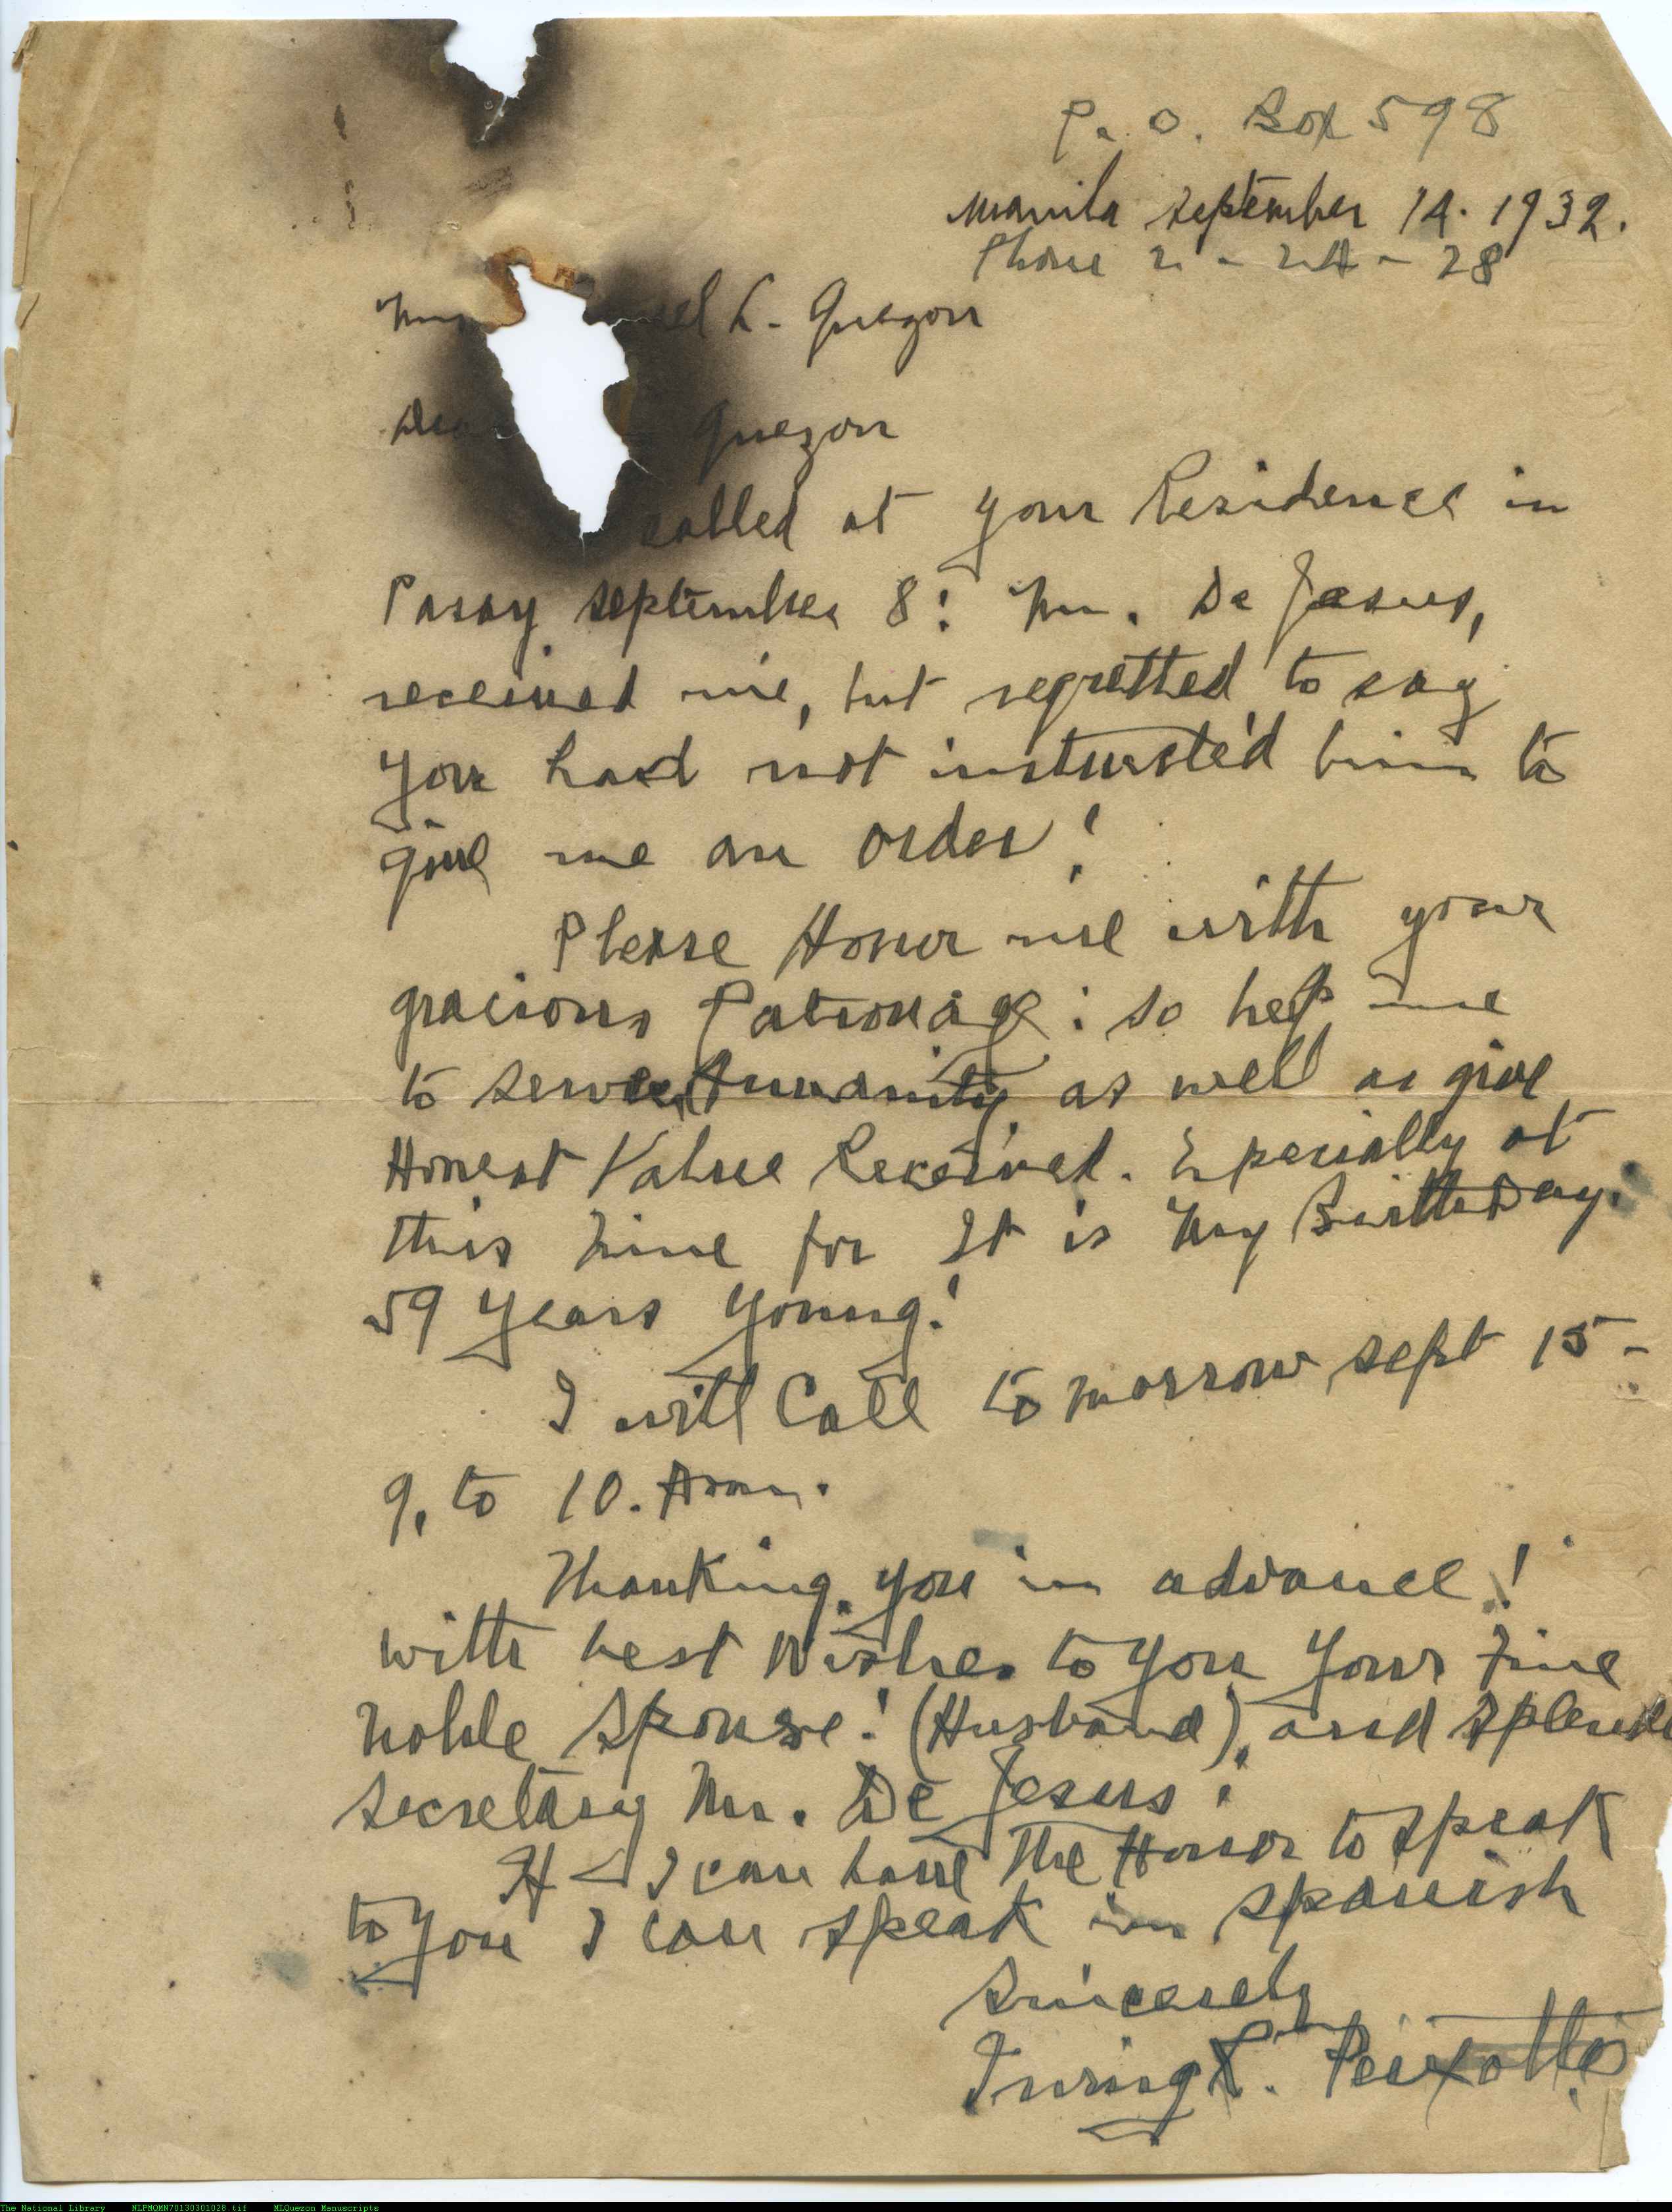 P. O. Box 598
Manila September 14. 1932.
Phone 2 - 24 - 28
L. Quezon
Quezon
called at your Residence in
Pasay September 8: Mr. De Jesus,
received me, but regretted to say
you had not instursted him to
give me an order!
Please Honor me with your
gracious Patronage: so help me
to serve Humanity as well as give
Honest Value Received. Especially at
this Time for It is My BirthDay.
59 years young!
I will Call tomorrow sept 15-
9, to 10. Am.
Thanking you in advance!
with best Wishes to you your Fine
noble Spouse! (Husband), and Splendid
Secretary Mr. De Jesus!
If I can have The Honor to speak
to you I can speak in spanish
Sincerely
Irving Peixotto
The National Library NLPMQMN70130301028.tif MLQuezon Manuscripts